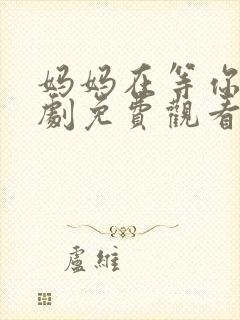 妈妈在等你
劇免費觀看
盧維